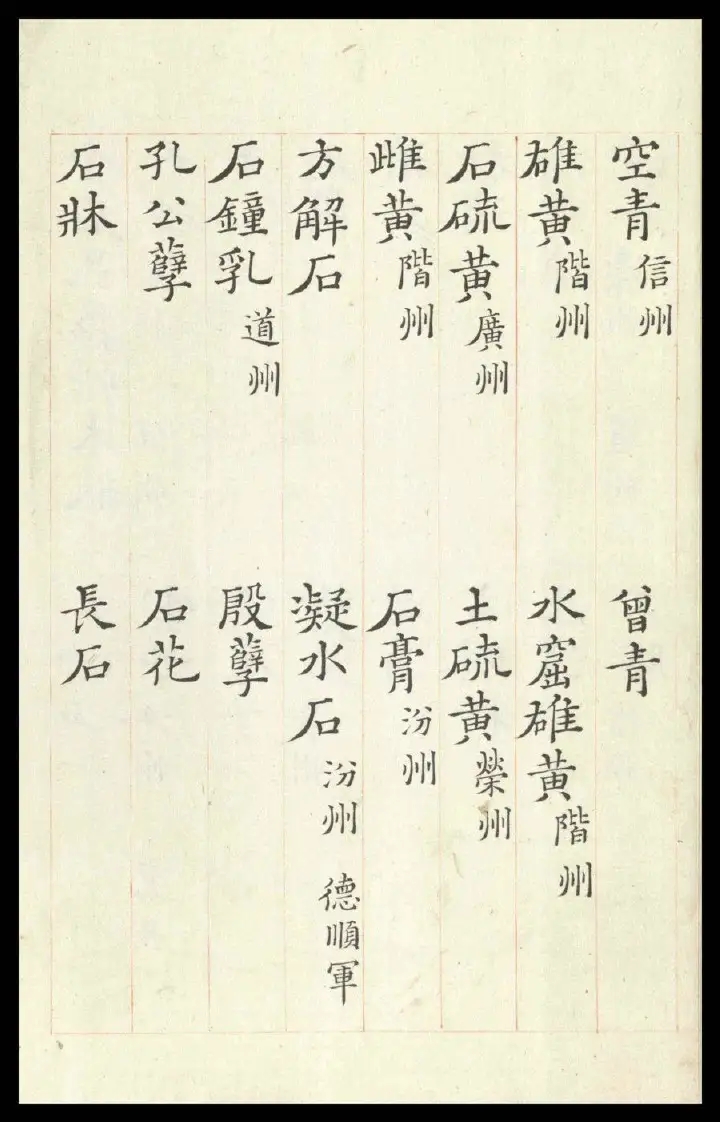 空青信州 曾青
雄黃階州 水窟雄黃階州
石硫黃廣州 土硫黃榮州
雌黃階州 石膏汾州
方解石 凝水石汾州 德順軍
石鐘乳道州 殷孽
孔公孽 石花
石牀 長石